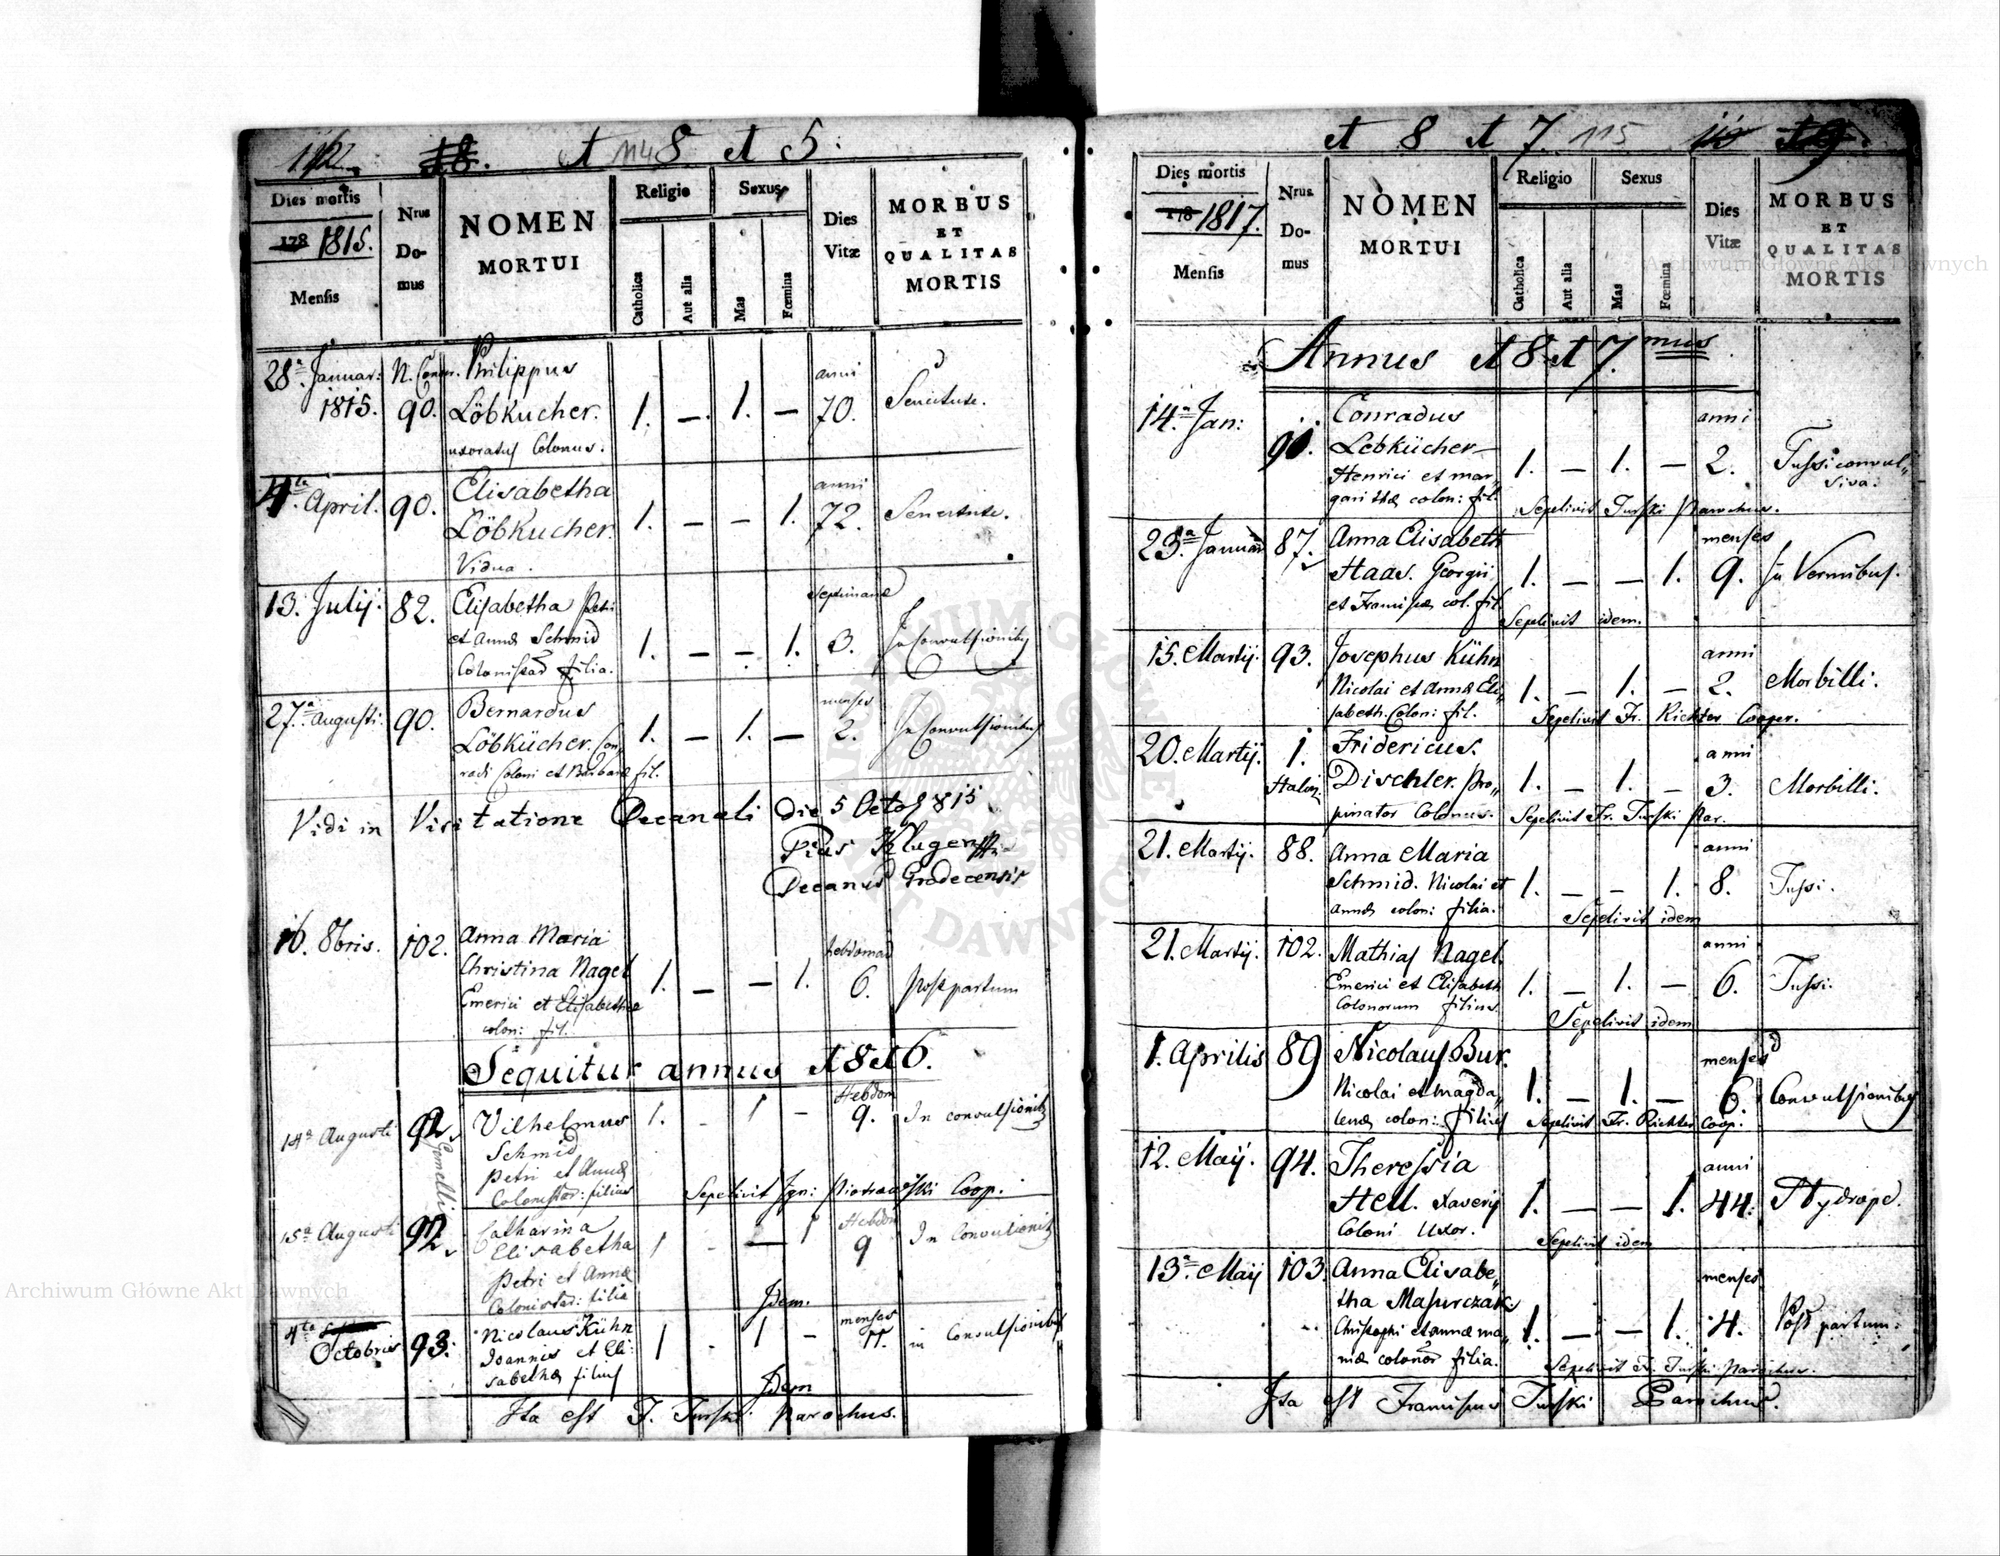 1 8 114 8 1 5.
Dies mortis
178 1815.
Mensis
Nrus
Do-
mus
NOMEN
MORTUI
Religio
Catholica
Aut alia
Sexus
Mas
Fœmina
Dies
Vitæ
MORBUS
ET
QUALITAS
MORTIS
28a Januar: N. Conscr. Philippus anni
1815. 90. Löbkucher. 1. – 1. – 70. Senectute.
uxoratus Colonus.
4ta April. 90. Elisabetha anni
Löbkucher. 1. – – 1. 72. Senectute.
Vidua.
13. Julij. 82. Elisabetha Petri septimanæ
et Annæ Schmid 1. – – 1. 3. In Convulsionibus
Colonistar filia.
27a Augusti. 90. Bernardus menses
Löbkücher. Con„ 1. – 1. – 2. In Convulsionibus
radi Coloni et Barbaræ fil.
Vidi in Visitatione Decanali die 5 Octob 815
Pius Klugen
Decanus Grodecensis
16. 8bris. 102. Anna Maria hebdomad
Christina Nagel 1. – – 1. 6. post partum
Emerici et Elisabethæ
colon: fil.
Sequitur annus 1816.
14a Augusti 92. Vilhelmus 1. – 1 – Hebdom 9. In convulsionib
Schmid
Gemelli
Petri et Annæ
Colonistar: filius Sepelivit Ign: Coop.
15a Augusti 92. Catharina Hebdom
Elisabetha 1 – – 1 9 In Convulsionib
Petri et Annæ
Colonistar: filia Idem.
4ta Octobris 93. Nicolaus Kühn menses
Joannis et Eli- 1 – 1 – 11. in Convulsionibus
sabethæ filius Idem
Ita est F. Turski Parochus.
1 8 1 7. 115
Dies mortis
178 1817.
Mensis
Nrus
Do-
mus
NOMEN
MORTUI
Religio
Catholica
Aut alia
Sexus
Mas
Fœmina
Dies
Vitæ
MORBUS
ET
QUALITAS
MORTIS
Annus 1817mus
14a Jan: 90. Conradus anni
Lebkücher 1. – 1. – 2. Tussi convul„
Henrici et mar„ siva.
garithæ colon: fil. Sepelivit Turski Parochus.
23a Januar 87. Anna Elisabeth menses
Haas. Georgii 1. – – 1. 9. In Vermibus.
et Franciscæ col. fil. Sepelivit idem.
15. Martij. 93. Josephus Kühn anni
Nicolai et Annæ Eli„ 1. – 1. – 2. Morbilli.
sabeth. Colon: fil. Sepelivit Fr. Richter Cooper.
20. Martij. 1. Fridericus. anni
Dischler. Pro„ 1. – 1. – 3. Morbilli.
pinator Colonus. Sepelivit Fr. Turski Par.
21. Martij. 88. Anna Maria anni
Schmid. Nicolai et 1. – – 1. 8. Tussi.
annæ colon: filia. Sepelivit idem
21. Martij. 102. Mathias Nagel. anni
Emerici et Elisabeth 1. – 1. – 6. Tussi.
Colonorum filius. Sepelivit idem
1. Aprilis 89 Nicolaus Bur. menses
Nicolai et magda„ 1. – 1. – 6. Convulsionibus
lenæ colon: filius Sepelivit Fr. Richter Coop.
12. Maij. 94. Theressia anni
Hell. Xaverij 1. – – 1. 44. Hydrope.
Coloni Uxor. Sepelivit idem
13a Maij 103. Anna Elisabe„ menses
tha Masurczak 1. – – 1. 4. Post partum.
Christophi et annæ ma„
riæ colonor filia. Sepelivit Fr. Turski Parochus.
Ita est Franciscus Turski Parochus.
Archiwum Główne Akt Dawnych
Archiwum Główne Akt Dawnych
ARCHIWUM GŁÓWNE AKT DAWNYCH